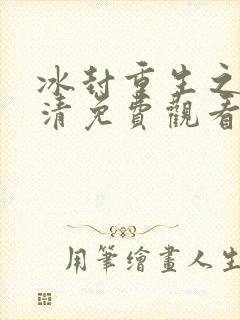 冰封重生之
清免費觀看
用筆繪畫人生